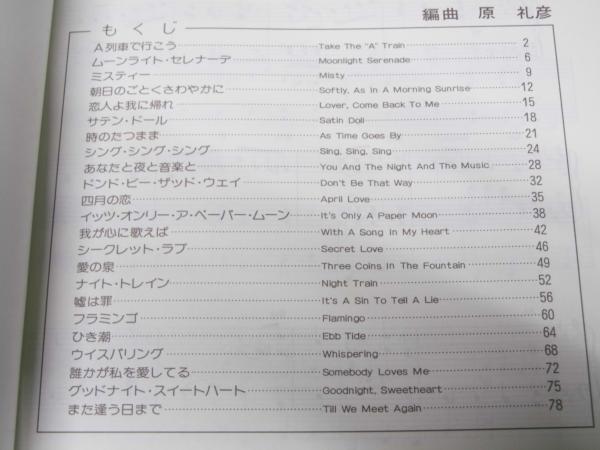 編曲 原 礼彦
もくじ
A列車で行こう Take The "A" Train 2
ムーンライト・セレナーデ Moonlight Serenade 6
ミスティー Misty 9
朝日のごとくさわやかに Softly, As In A Morning Sunrise 12
恋人よ我に帰れ Lover, Come Back To Me 15
サテン・ドール Satin Doll 18
時のたつまま As Time Goes By 21
シング・シング・シング Sing, Sing, Sing 24
あなたと夜と音楽と You And The Night And The Music 28
ドンド・ビー・ザッド・ウェイ Don't Be That Way 32
四月の恋 April Love 35
イッツ・オンリー・ア・ペーパー・ムーン It's Only A Paper Moon 38
我が心に歌えば With A Song In My Heart 42
シークレット・ラブ Secret Love 46
愛の泉 Three Coins In The Fountain 49
ナイト・トレイン Night Train 52
嘘は罪 It's A Sin To Tell A Lie 56
フラミンゴ Flamingo 60
ひき潮 Ebb Tide 64
ウイスパリング Whispering 68
誰かが私を愛してる Somebody Loves Me 72
グッドナイト・スイートハート Goodnight, Sweetheart 75
また逢う日まで Till We Meet Again 78